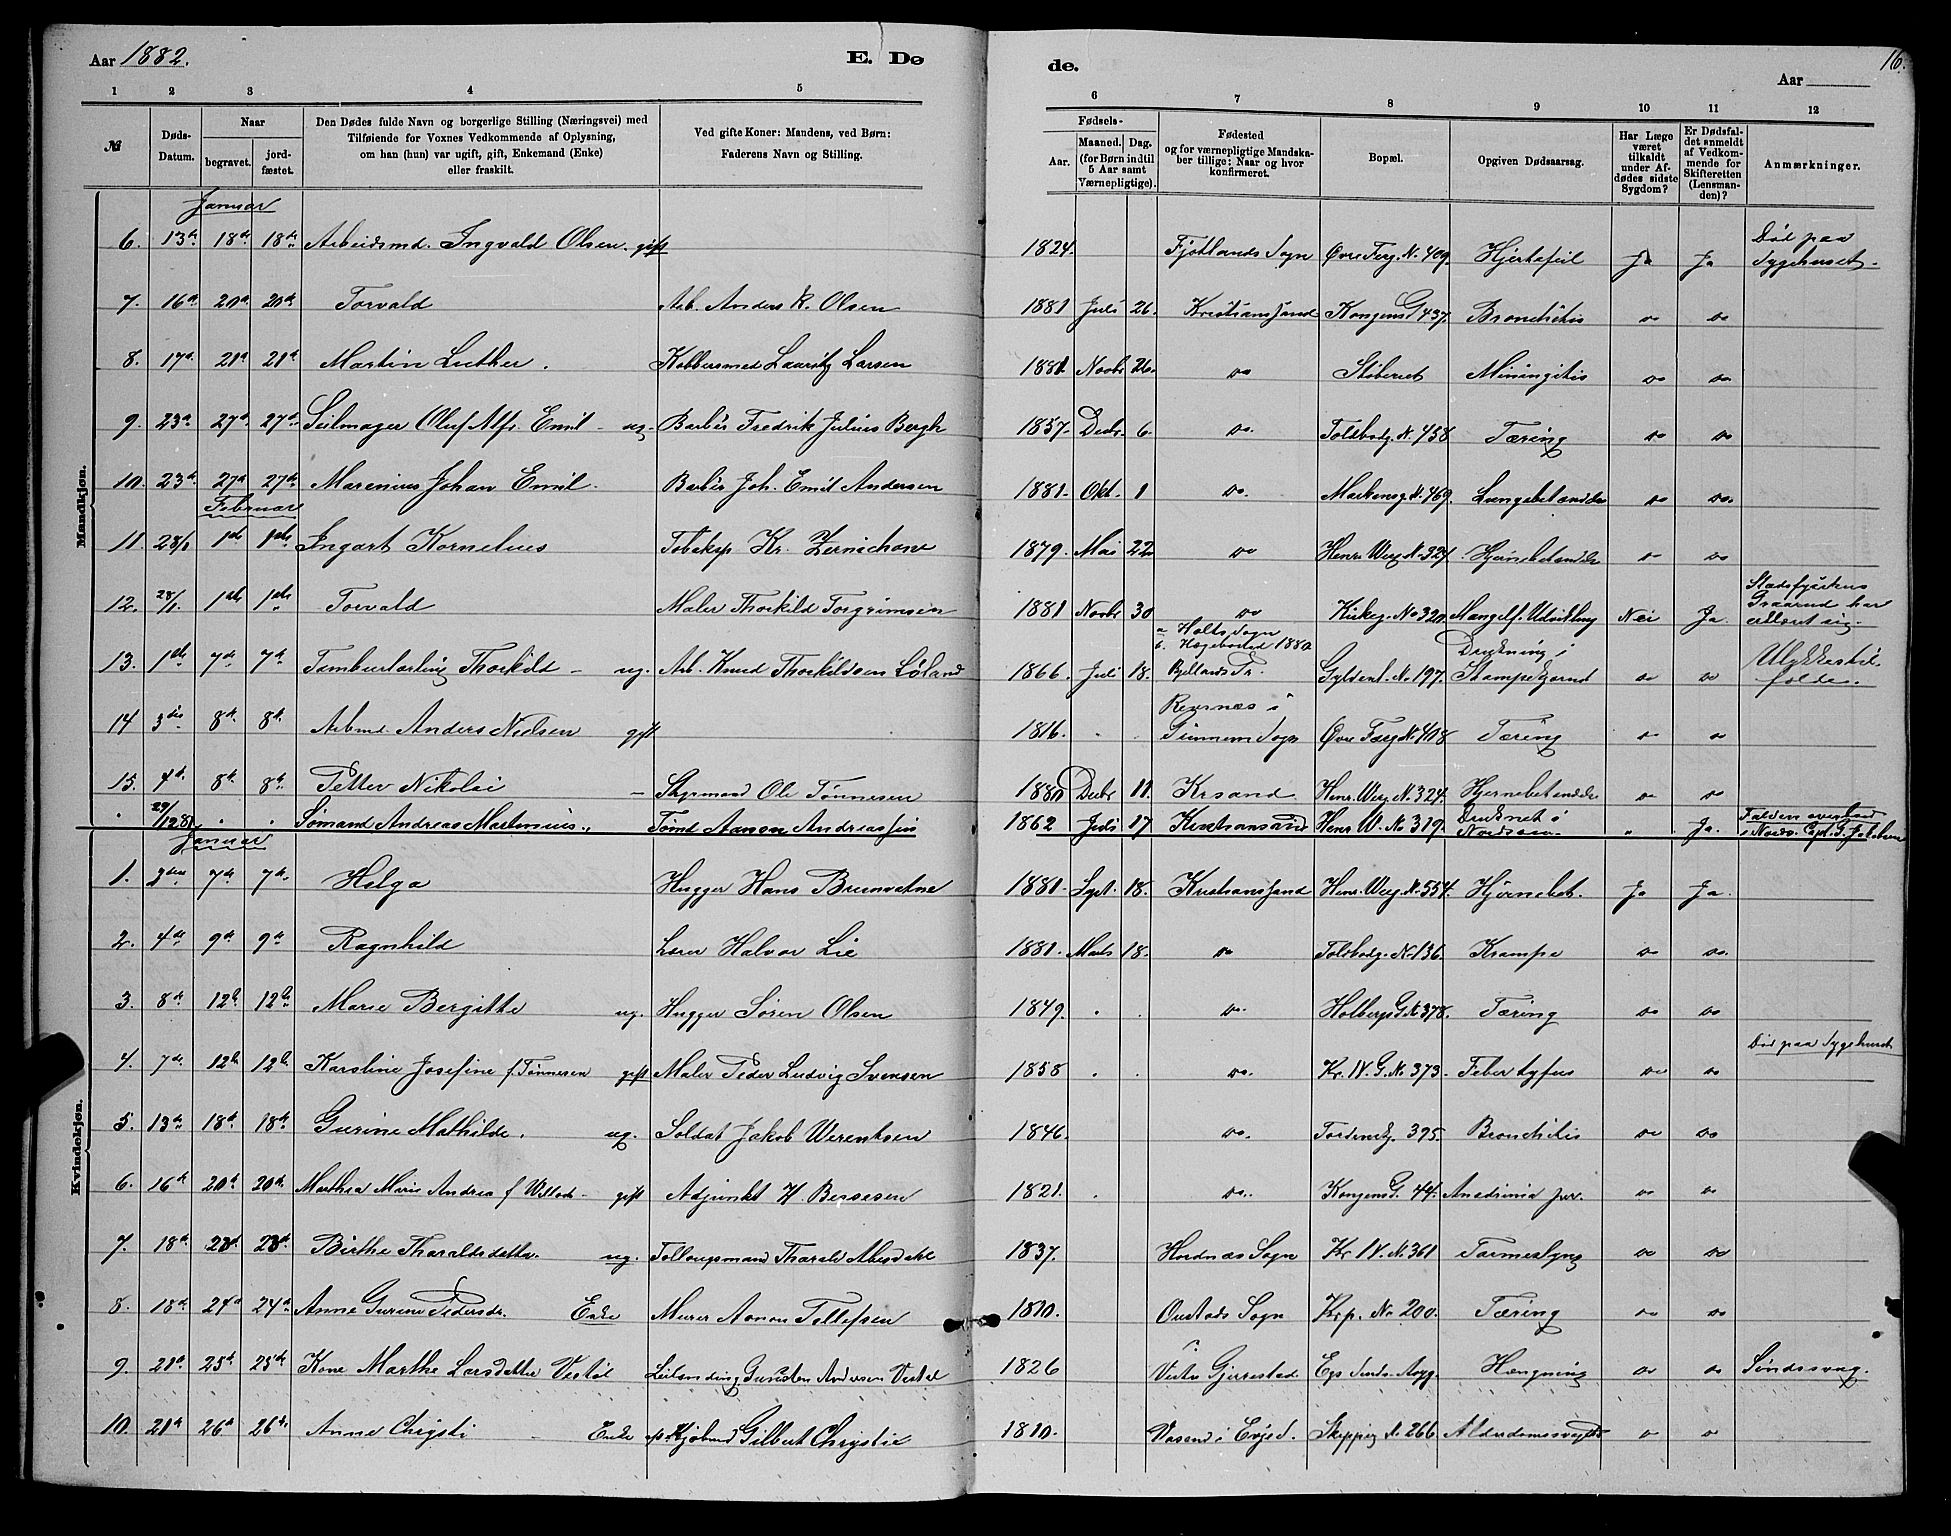 Aar 1882. E. Døde. Aar 16.
1 2 3 4 5 6 7 8 9 10 11 12
№ Døds-Datum. Naar begravet. jordfæstet. Den Dødes fulde Navn og borgerlige Stilling (Næringsvei) med Tilføiende for Voxnes Vedkommende af Oplysning, om han (hun) var ugift, gift, Enkemand (Enke) eller fraskilt. Ved gifte Koner: Mandens, ved Børn: Faderens Navn og Stilling. Fødsels- Aar. Maaned. Dag. (for Børn indtil 5 Aar samt Værnepligtige). Fødested og for værnepligtige Mandskaber tillige: Naar og hvor konfirmeret. Bopæl. Opgiven Dødsaarsag. Har Læge været tilkaldt under Afdødes sidste Sygdom? Er Dødsfaldet anmeldt af Vedkommende for Skifteretten (Lensmanden)? Anmærkninger.
Mandkjøn.
Januar
6. 13de 18de 18de Arbeidsmd. Ingvald Olsen. gift 1824. Fjotlands Sogn Øvre Torg. N. 409. Hjertefeil Ja Ja Død paa Sygehuset.
7. 16de 20de 20de Torvald Arb. Anders K. Olsen 1881 Juli 26. Kristianssand Kongens G 437. Bronchitis do do
8. 17de 21de 21de Martin Luther. Kobbersmed Lauritz Larsen 1881 Novbr 26. do Støberiet Miningitis do do
9. 23de 27de 27de Seilmager Oluf Alfr. Emil - ug. Barbér Fredrik Julius Bergh 1857. Decbr. 6. do. Toldbodg. N. 458 Tæring do do
10. 23de 27de 27de Marenius Johan Emil. Barbér Joh. Emil Andersen 1881. Okt. 1 do. Markensg. N. 469. Lungebetændelse do do.
Februar
11. 28/1 1ste 1ste Ingart Kornelius Tobaksp Kr. Zernichow 1879. Mai 22. do Henr. Werg. N. 324. Hjernebetændelse do do
12. 28/1. 1ste 1ste Torvald Maler Thorkild Torgrimsen 1881 Novbr 30 do Kirkeg. No 320 Mangelf. Udvikling Nei Ja. Stadsfysikus Graarud har erklæret sig.
13. 1ste 7de 7de Tamburlærling Thorkild - ug. Arb. Knud Thorkildsen Løland 1866. Juli 18. Holts Sogn Hægebosted 1880 Bjellands Pr. Gyldenl. N. 197. Drukning i Stampekjernet do do Ulykkestilfælde.
14 3die 8de 8de Arbmd. Anders Nielsen gift 1816. Revsnæs i Siunem Sogn Øvre Torg. N. 408 Tæring do do
15. 4de 8de 8de Petter Nikolai - Styrmand Ole Tønnesen 1880 Decbr 11. Krsand Henr. Werg. N. 324. Hjernebetændelse do do
29/12 81 Sømand Andreas Martinius. Tømd Aanon Andreassen 1862 Juli 17 Kristianssand Henr. W. No 319. Druknet i Nordsøen " Ja. Falden overbord i Nords. Capt. G. Jakobsen
Kvindekjøn.
Januar
1. 7de 7de Helga Hugger Hans Brunvatne 1881. Sept. 18. Kristianssand Henr. Werg. N. 554. Hjernebet. Ja Ja.
2. 4de 9de 9de Ragnhild Lærer Halvor Lie 1881. Marts 18. do Toldbodg. No 136. Krampe do do.
3. 8de 12te 12te Marie Bergitte ug. Hugger Søren Olsen 1849. do. Holbergs G N 378. Tæring do do
4. 7de 12te 12te Karoline Josefine f. Tønnesen gift Maler Peder Ludvig Svensen 1858 do. Kr. IV. G. No 373. Feber tyfus do do Død paa Sygehuset
5. 13de 18de 18de Gurine Mathilde. ug. Soldat Jakob Werentsen 1846. do. Tordenskj. 395. Bronchitis do do
6. 16de 20de 20de Marthea Marie Andrea f - gift Adjunkt H Bersesen 1821. do. Kongens G. 44. do do
7. 18de 23de 23de Birthe Tharaldsdatter. ug. Tharald 1837. Hordnæs Sogn Kr IV. N. 361 Tarmeslyng do do
8. 18de 24de 24de Anne Gurine Pedersdr. Enke Murer Aanon Tellefsen 1810. Oustads Sogn Krp. No 200. Tæring do do
9 21de 25de 25de Kone Marthe Larsdatter Vestøl Leilænding Gunsten Andersen Vestøl 1826 Vestre Gjerrestad Egs Sinds. Asyg. Hængning do do Sindssvag.
10. 21de 26de 26de Anne Chrystie Enke ef. Kjøbmd Gilbert Chrystie 1810. Vasend i Evjed. Skipperg N. 266 Alderdomssvaghed do do